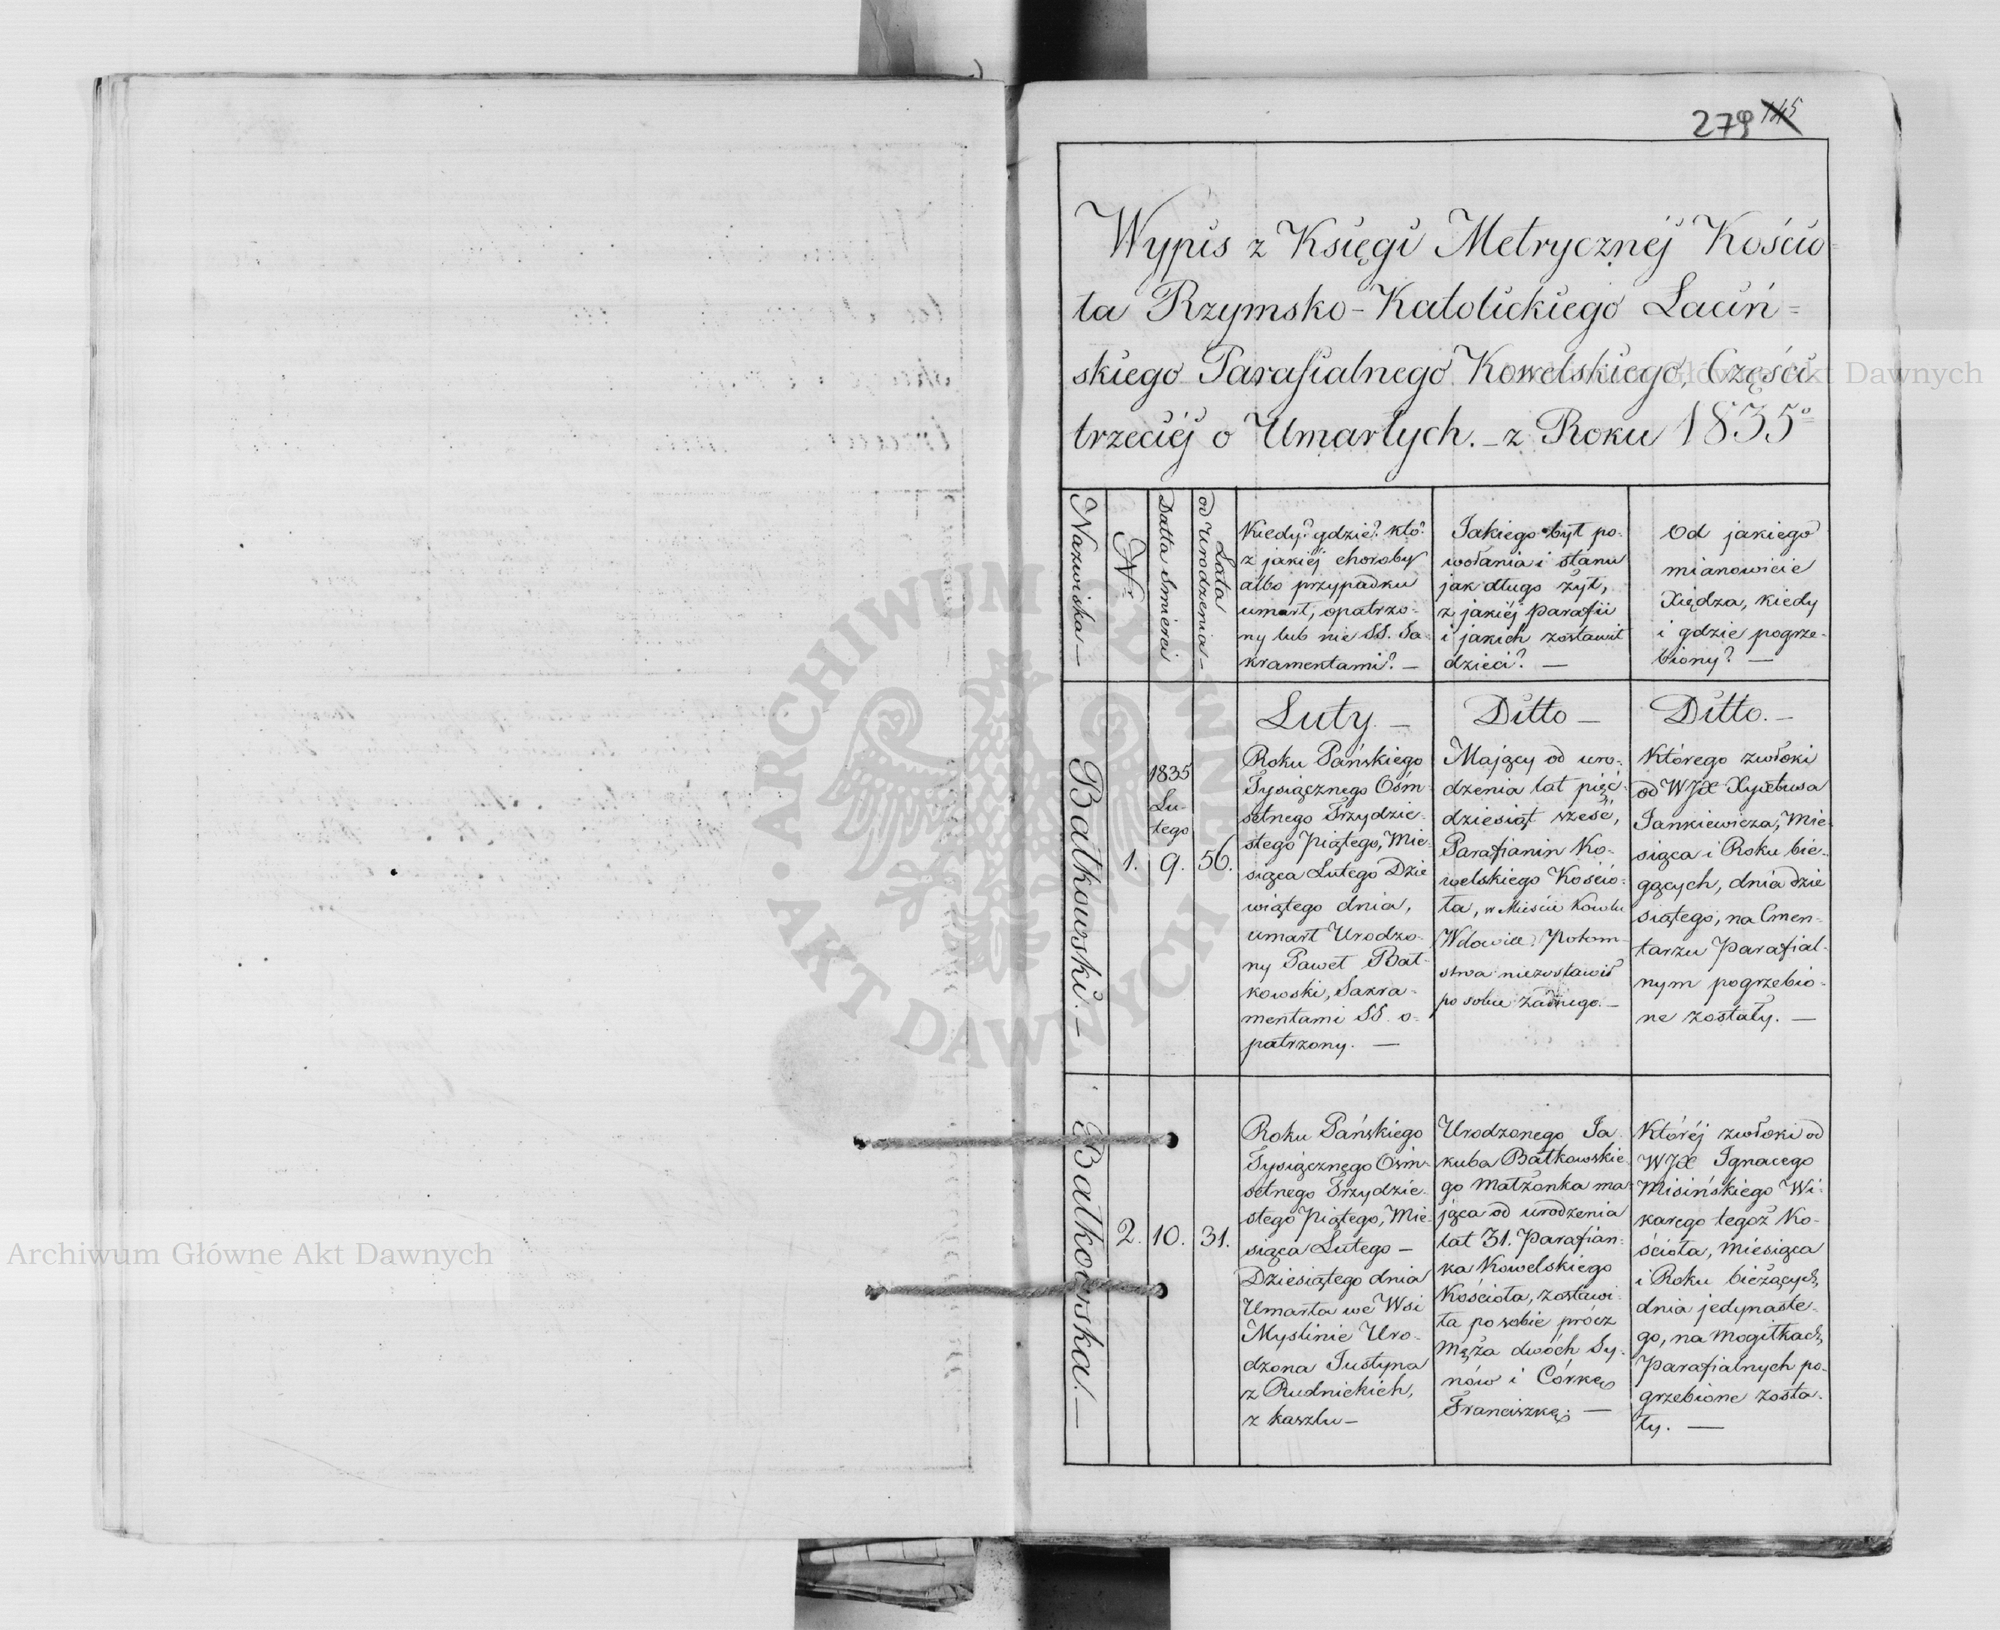 279 145
Wypis z Księgi Metrycznéj Kościo=
ła Rzymsko-Katolickiego Laciń=
skiego Parafialnego Kowelskiego, Części
trzeciéj o Umarłych. – z Roku 1835º
Nazwiska –
Nr
Datta Smierci
Lata
od Urodzenia –
Kiedy? gdzie? kto?
z jakiéj choroby
albo przypadku
umarł, opatrzo-
ny lub nie SS. Sa-
kramentami? –
Jakiego był po-
wołania i stanu
jak długo żył,
z jakiéj parafii
i jakich zostawił
dzieci? –
Od jakiego
mianowicie
Xiędza, kiedy
i gdzie pogrze-
biony? –
Bałkowski. –
1.
1835
Lu-
tego
9.
56.
Luty. –
Roku Pańskiego
Tysiącznego Ośm-
setnego Trzydzie-
stego Piątego, Mie-
siąca Lutego Dzie
wiątego dnia,
umarł Urodzo-
ny Paweł Bał-
kowski, Sakra-
mentami SS. o-
patrzony. –
Ditto –
Mający od uro-
dzenia lat pięć-
dziesiąt sześć,
Parafianin Ko-
welskiego Kościo-
ła, w Mieście Kowlu
Wdowiec, Potom-
stwa niezostawił
po sobie żadnego. –
Ditto. –
Którego zwłoki
od WJX Xystusa
Jankiewicza, Mie-
siąca i Roku bie-
gących, dnia dzie
siątego, na Cmen-
tarzu Parafial-
nym pogrzebio-
ne zostały. –
Bałkowska. –
2.
10.
31.
Roku Pańskiego
Tysiącznego Ośm-
setnego Trzydzie-
stego Piątego, Mie-
siąca Lutego –
Dziesiątego dnia
Umarła we Wsi
Myslinie Uro-
dzona Justyna
z Rudnickich,
z kaszlu –
Urodzonego Ja-
kuba Bałkowskie-
go małżonka ma-
jąca od urodzenia
lat 31. Parafian-
ka Kowelskiego
Kościoła, zostawi-
ła po sobie prócz
Męża dwóch Sy-
nów i Córkę
Franciszkę. –
Któréj zwłoki od
WJX Ignacego
Misińskiego Wi-
karego tegoż Ko-
ścioła, miesiąca
i Roku bieżących,
dnia jedynaste-
go, na mogiłkach
Parafialnych po-
grzebione zosta-
ły. –
Archiwum Główne Akt Dawnych
Główne Akt Dawnych
ARCHIWUM GŁÓWNE · AKT DAWNYCH ·